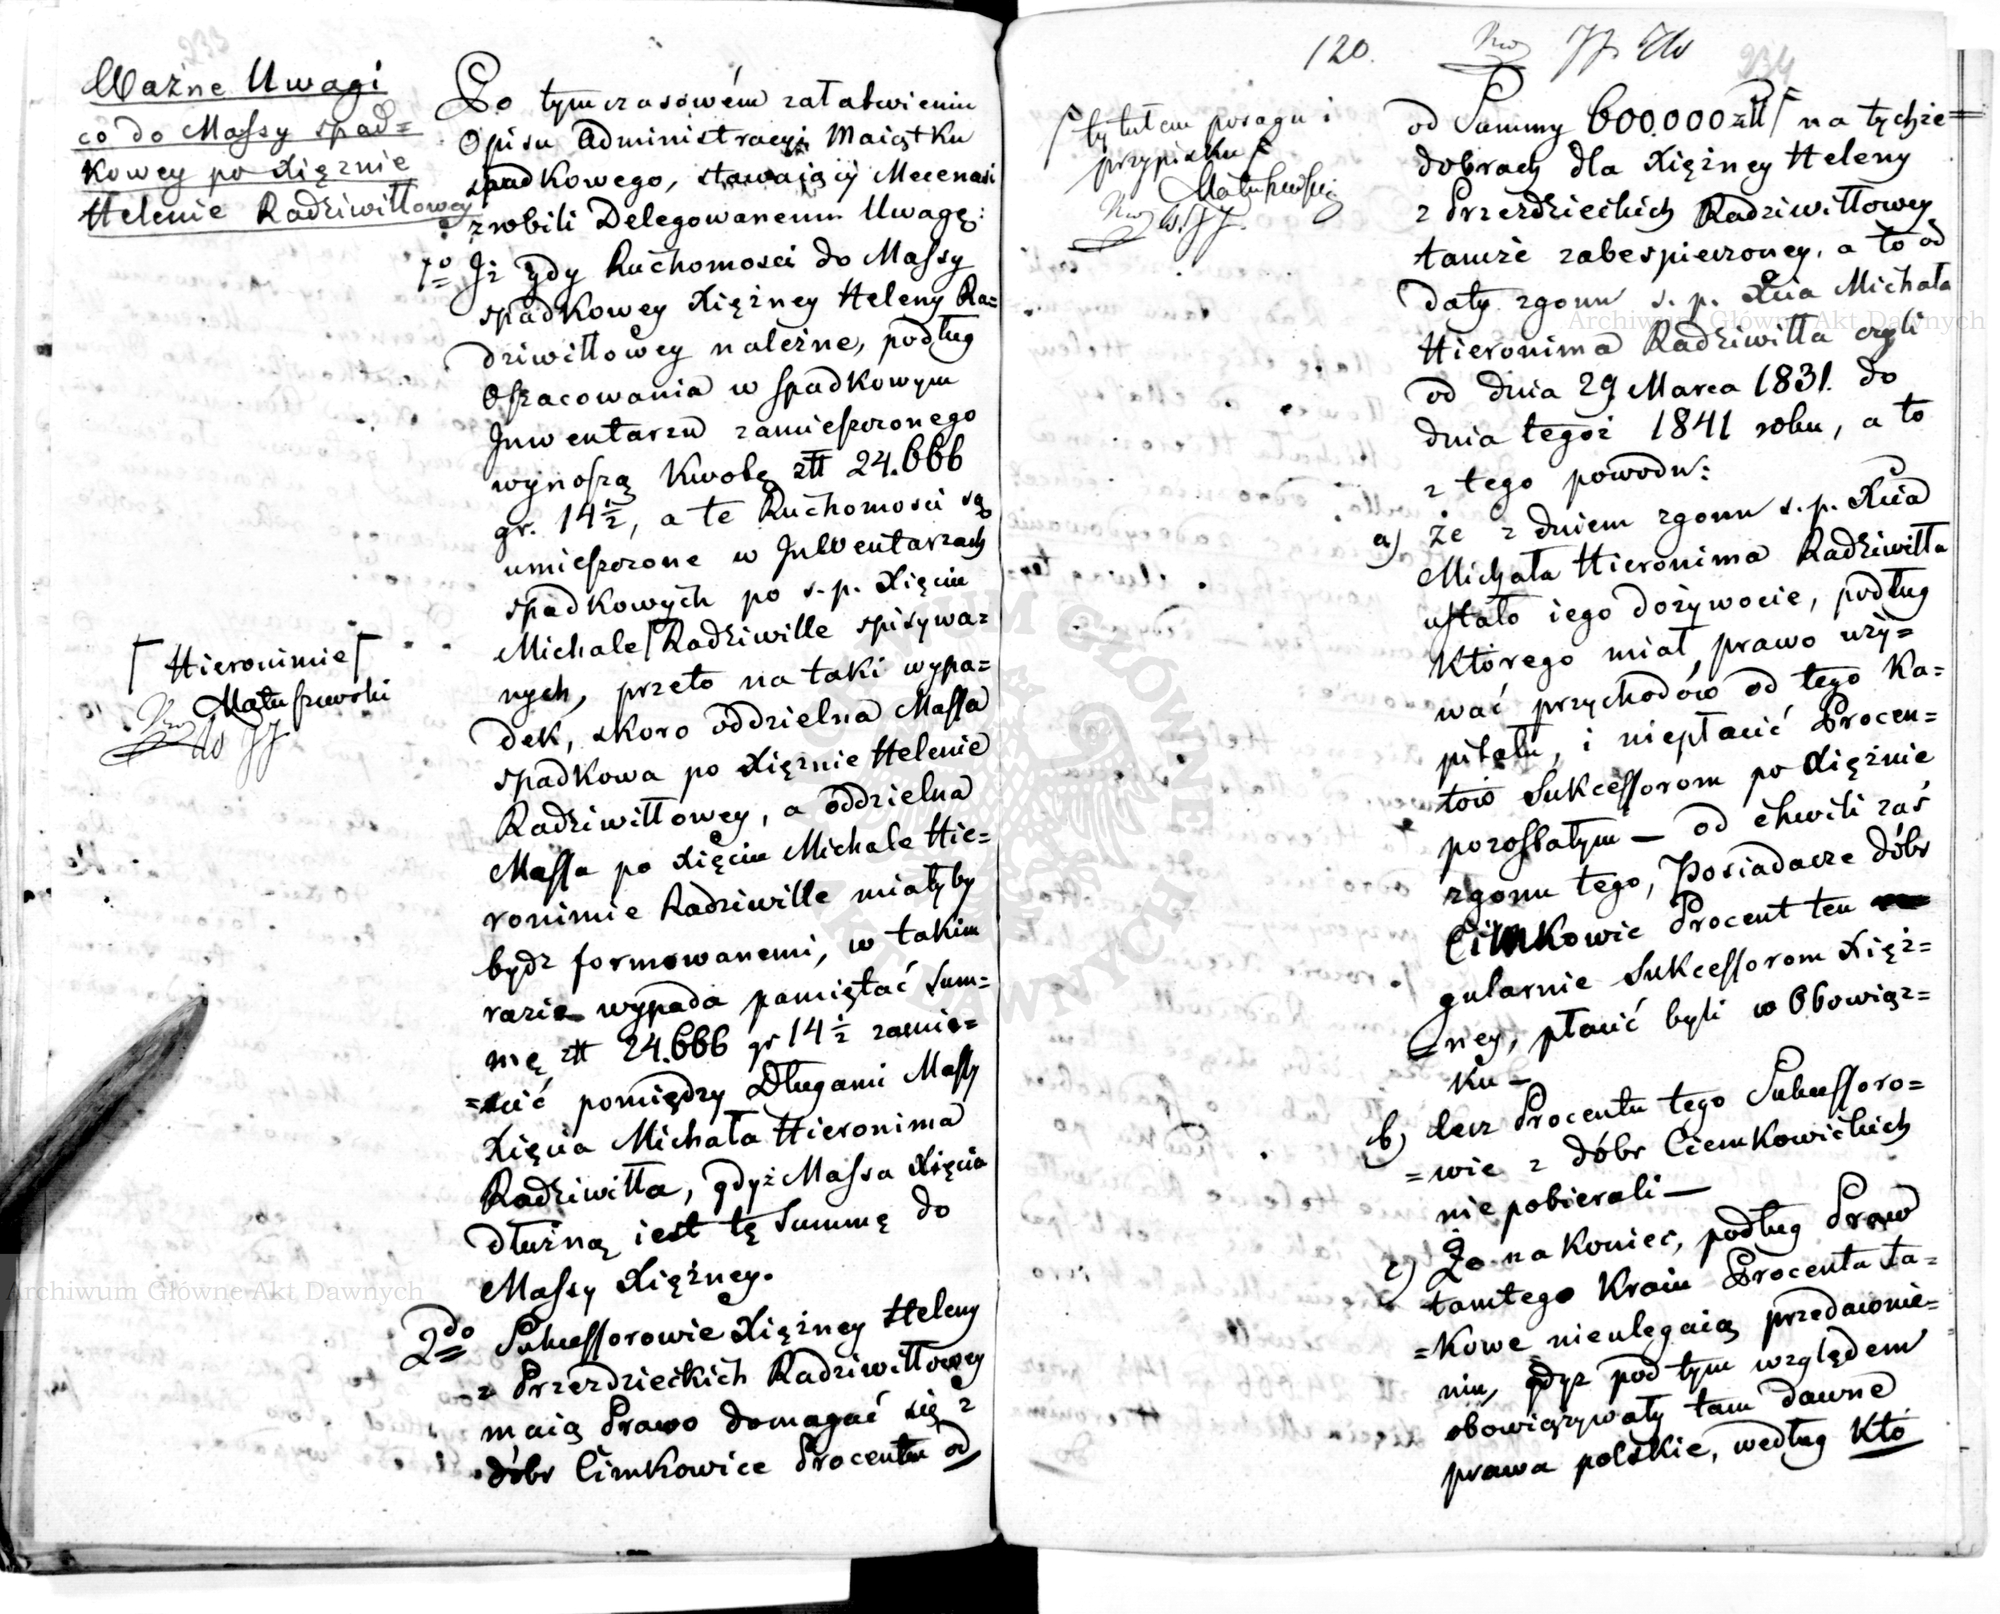 Ważne Uwagi
co do Massy spad=
kowey po Xiężnie
Helenie Radziwiłłowey
Po tymczasowém załatwieniu
Opisu Administracyi Maiątku
spadkowego, stawaiący Mecenasi
zrobili Delegowanemu Uwagę:
1o Iż gdy Ruchomosci do Massy
spadkowey Xiężney Heleny Ra=
dziwiłłowey należne, podług
Oszacowania w spadkowym
Inwentarzu zamieszczonego
wynoszą Kwotę złł 24.666
gr. 14½, a te Ruchomosci są
umieszczone w Inwentarzach
spadkowych po s.p. Xięciu
Michale ⌈ Radziwille spisywa=
nych, przeto na taki wypa=
dek, skoro oddzielna Massa
spadkowa po Xiężnie Helenie
Radziwiłłowey, a oddzielna
Massa po Xięciu Michale Hie=
ronimie Radziwille miałyby
bydz formowanemi, w takim
razie wypada pamiętać Sum=
mę złł 24.666 gr 14½ zamie=
=scić pomiędzy Długami Massy
Xięcia Michała Hieronima
Radziwiłła, gdyż Massa Xięcia
dłużną iest tę Summę do
Massy Xiężney.
2do Sukcessorowie Xiężney Heleny
z Przezdzieckich Radziwiłłowey
maią Prawo domagać się z
dóbr Cimkowice Procentu od
⌈ Hieronimie ⌈
Matuszewski
120.
234
⌈ tytułem posagu i
przypisku ⌈
Matuszewski
od Summy 600.000 złł ⌈ na tychże=
dobrach dla Xiężney Heleny
z Przezdzieckich Radziwiłłowey
tamże zabespieczoney, a to od
daty zgonu s.p. Xcia Michała
Hieronima Radziwiłła czyli
od dnia 29 Marca 1831. do
dnia tegoż 1841 roku, a to
z tego powodu:
a) Że z dniem zgonu s.p. Xcia
Michała Hieronima Radziwiłła
ustało iego dożywocie, podług
Którego miał prawo uży=
wać przychodów od tego Ka=
pitału, i niepłacić Procen=
tów Sukcessorom po Xiężnie
pozostałym — od chwili zaś
zgonu tego, Posiadacze dóbr
Cimkowic Procent ten
gularnie Sukcessorom Xięż=
=ney, płacić byli w Obowiąz=
ku —
b) Lecz Procentu tego Sukcessoro=
=wie z dóbr Ciemkowickich
niepobierali —
c) Że nakoniec, podług Praw
tamtego Kraiu Procenta ta=
=kowe nieulegaią przedawnie=
niu, gdyz pod tym względem
obowiązywały tam dawne
prawa polskie, według Któ
Archiwum Główne Akt Dawnych
Archiwum Główne Akt Dawnych
ARCHIWUM GŁÓWNE AKT DAWNYCH